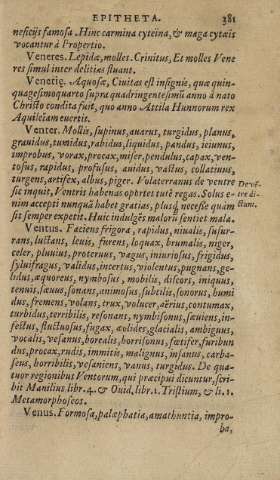 EPITHETA. 381
nesicijs famosa. Hinc carmina cyteina, & maga cytæis
vocantur à Propertio.
Veneres. Lepidæ, molles. Crinitus, Et molles Vene
res simul inter delitias fluant.
Venetię. Aquosæ, Ciuitas est insignis, quæ quin-
quagesimoquarto supra quadringentesimū anno à nato
Christo condita fuit, quo anno Attila Hunnorum rex
Aquileiam euertit.
Venter. Mollis, supinus, auarus, turgidus, planus,
grauidus, tumidus, rabidus, liquidus, pandus, ieiunus,
improbus, vorax, procax, miser, pendulus, capax, ven-
tosus, rapidus, profusus, auidus, vastus, collatiuus,
turgens, artifex, albus, piger. Volaterranus de ventre
sic inquit, Ventris habenas oportet tuæ regas. Solus e-
nim accepti nunquā habet gratias, plusq́ necesse quàm
sit semper expetit. Huic indulgēs malorū sentiet mala.
De vētre di-
ctum.
Ventus. Faciens frigora, rapidus, niualis, susur-
rans, luctans, leuis, furens, loquax, brumalis, niger,
celer, pluuius, proteruus, vagus, iniuriosus, frigidus,
syluifragus, validus, incertus, violentus, pugnans, ge-
lidus, æquoreus, nymbosus, mobilis, discors, iniquus,
tenuis, sæuus, sonans, animosus, subtilis, sonorus, humi
dus, fremens, volans, trux, volucer, aërius, contumax,
turbidus, terribilis, resonans, nymbisonus, sæuiens, in-
festus, fluctuosus, fugax, æolides, glacialis, ambiguus,
vocalis, vesanus, borealis, horrisonus, fœtifer, furibun
dus, procax, rudis, immitis, malignus, insanus, carba-
seus, horribilis, vesaniens, vanus, turgidus. De qua-
tuor regionibus Ventorum, qui præcipui dicuntur, scri-
bit Manilius libr. 4. & Ouid, libr. 1. Tristium, & li. 1.
Metamorphoseos.
Venus. Formosa, palæphatia, amathuntia, impro-
ba,